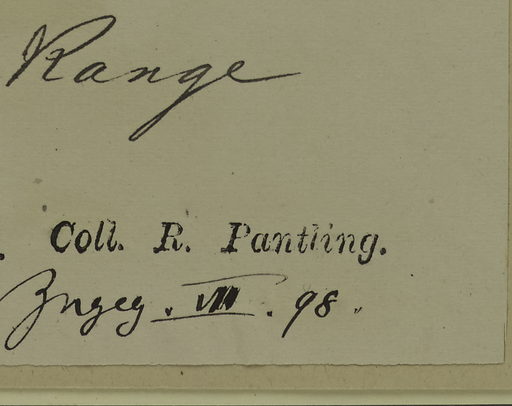 Range
. Coll. R. Pantling.
VIII . 98 .